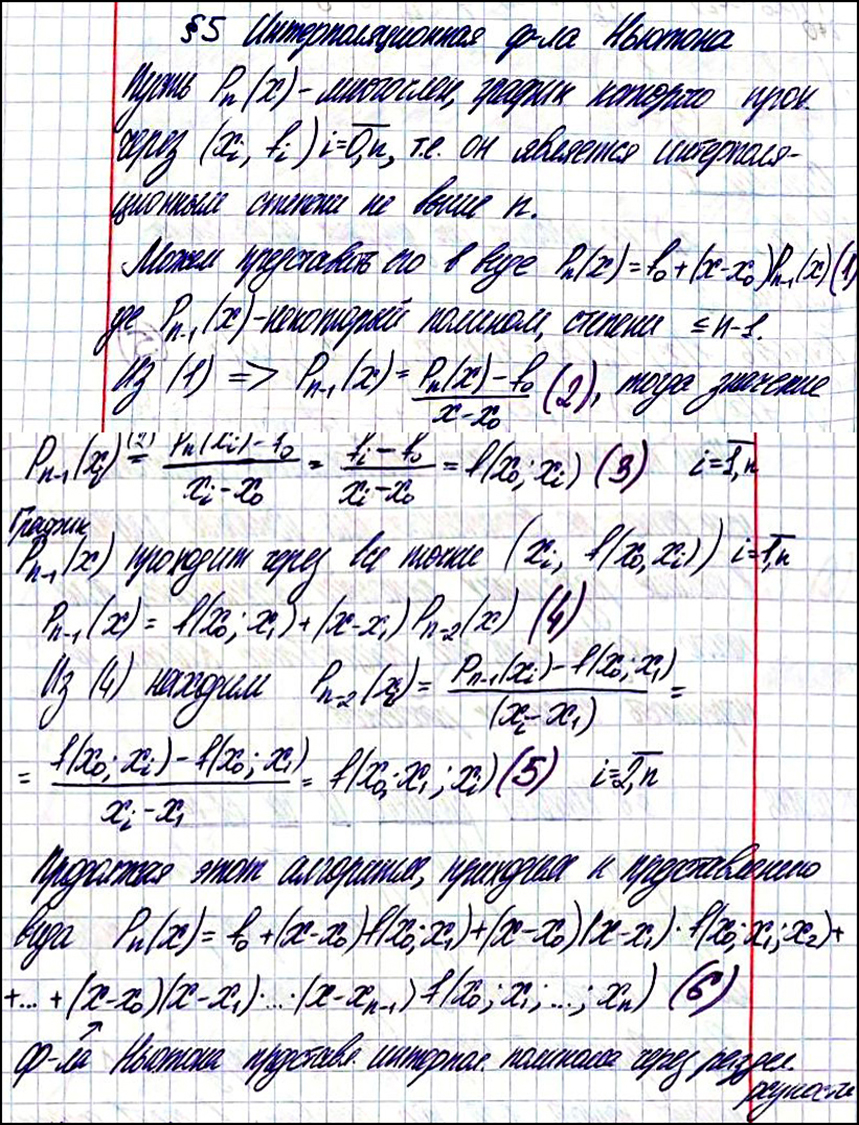 §5 Интерполяционная ф-ла Ньютона
Пусть Pₙ(x) - многочлен, график которого прох.
через (xᵢ, fᵢ) i=0,n, т.е. он является интерполя-
ционным степени не выше n.
Можем представить его в виде Pₙ(x) = f₀ + (x-x₀)Pₙ₋₁(x) (1)
где Pₙ₋₁(x) - некоторый полином, степени ≤ n-1.
Из (1) => Pₙ₋₁(x) = (Pₙ(x) - f₀)/(x-x₀) (2), тогда значение
Pₙ₋₁(xᵢ) (2)= (Pₙ(xᵢ) - f₀)/(xᵢ-x₀) = (fᵢ - f₀)/(xᵢ-x₀) = f(x₀; xᵢ) (3) i=1,n
График
Pₙ₋₁(x) проходит через все точки (xᵢ, f(x₀, xᵢ)) i=1,n
Pₙ₋₁(x) = f(x₀; x₁) + (x-x₁) Pₙ₋₂(x) (4)
Из (4) находим Pₙ₋₂(xᵢ) = (Pₙ₋₁(xᵢ) - f(x₀; x₁))/(xᵢ-x₁) =
= (f(x₀; xᵢ) - f(x₀; x₁))/(xᵢ-x₁) = f(x₀; x₁; xᵢ) (5) i=2,n
Продолжая этот алгоритм, приходим к представлению
вида Pₙ(x) = f₀ + (x-x₀)f(x₀; x₁) + (x-x₀)(x-x₁)·f(x₀; x₁; x₂) +
+... + (x-x₀)(x-x₁)·...·(x-xₙ₋₁) f(x₀; x₁; ...; xₙ) (6)
↑
ф-ла Ньютона представл. интерпол. полинома через раздел.
разности